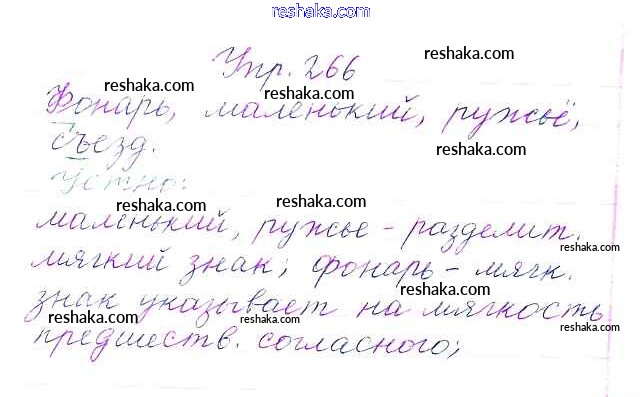 reshaka.com
Упр. 266
Фонарь, маленький, ружьё,
съезд.
Устно:
маленький, ружье - разделит.
мягкий знак; фонарь - мягк.
знак указывает на мягкость
предшеств. согласного;
reshaka.com
reshaka.com
reshaka.com
reshaka.com
reshaka.com
reshaka.com
reshaka.com
reshaka.com
reshaka.com
reshaka.com
reshaka.com